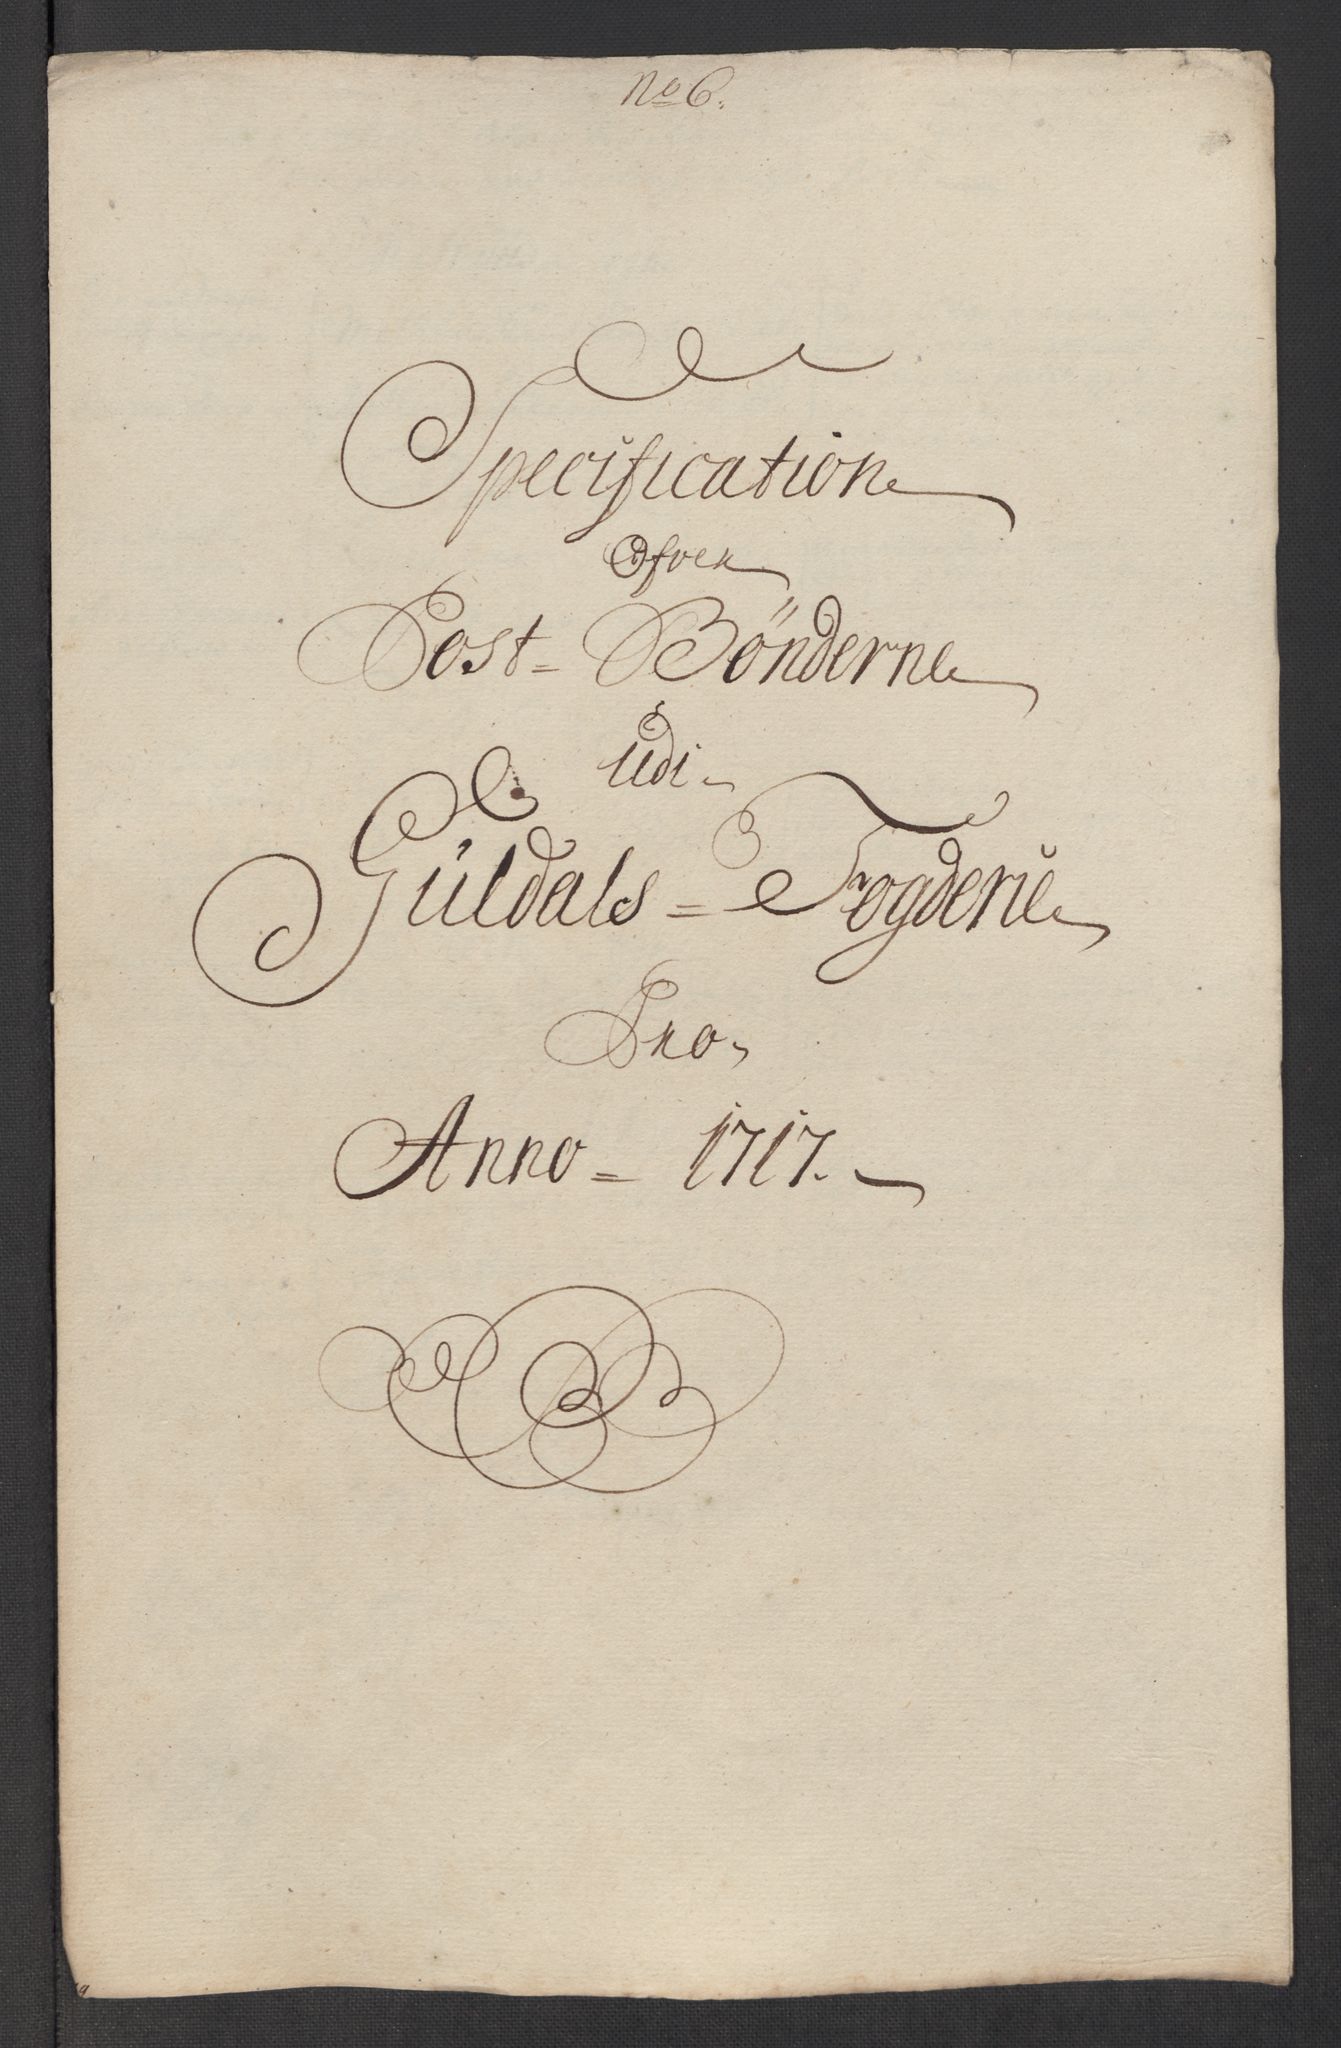 No 6.
Specification
Ofver
Post- Bønderne
udi
Guldals = Fogderie
Pro
Anno = 1717.